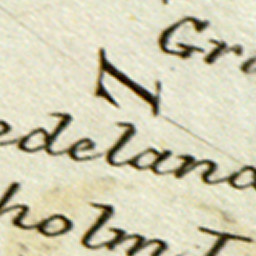 Gr
N
edeland
holm I